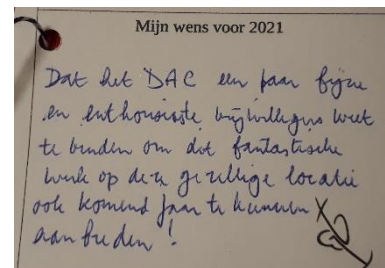 Mijn wens voor 2021
Dat het DAC een paar fijne
en enthousiaste vrijwilligers weet
te binden om dit fantastische
werk op deze gezellige locatie
ook komend jaar te kunnen
aanbieden!